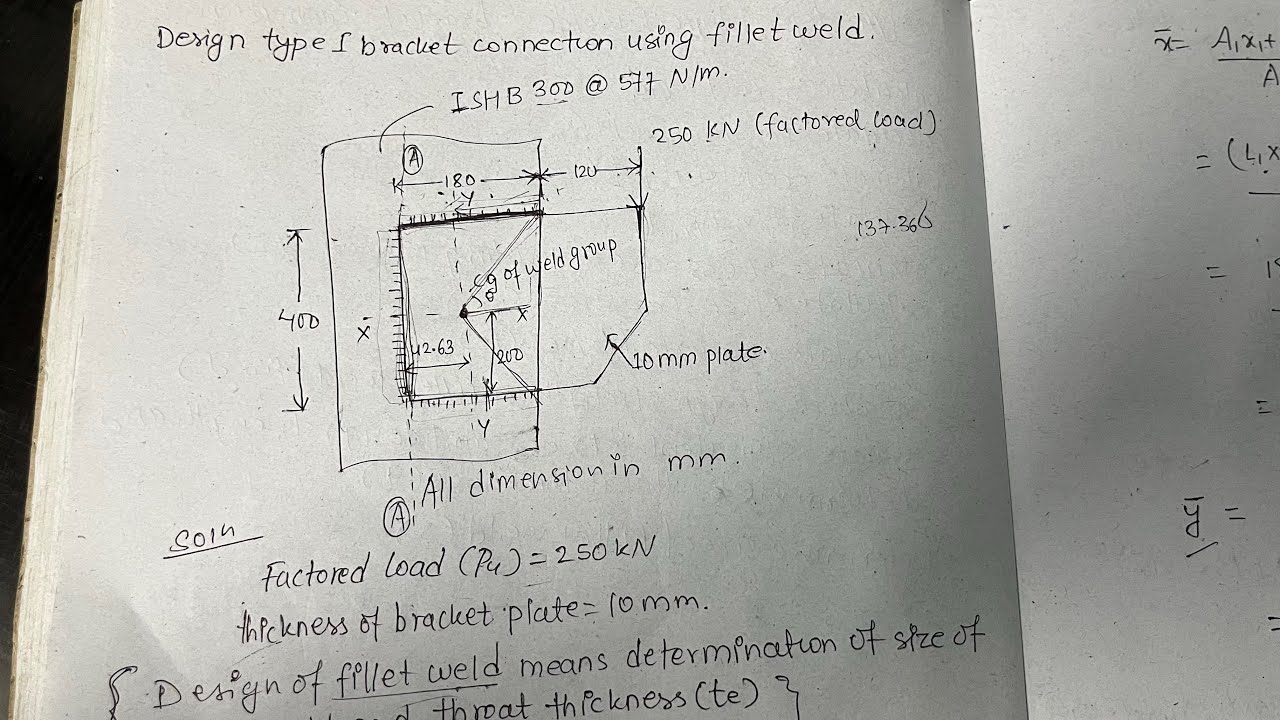 Design type I bracket connection using fillet weld.
ISHB 300 @ 577 N/m.
250 KN (factored load)
A
180
120
Y
137.366
cg of weld group
θ
400
x̄
X
42.63
200
10mm plate.
Y
All dimension in mm.
A
Soln
Factored Load (Pu) = 250 kN
thickness of bracket plate = 10 mm.
{ Design of fillet weld means determination of size of
throat thickness (te) }
x̄ = A₁x₁+
A
= (L₁x
=
=
ȳ =
=